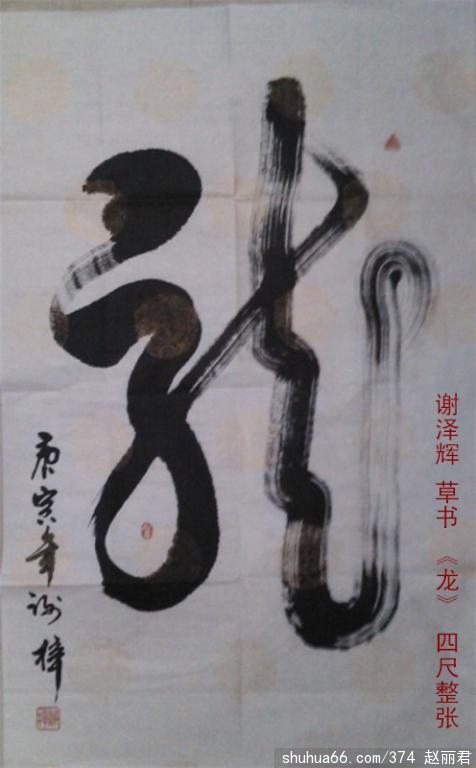 龍
庚寅年谢梓
谢泽辉 草书 《龙》 四尺整张
shuhua66.com/374 赵丽君